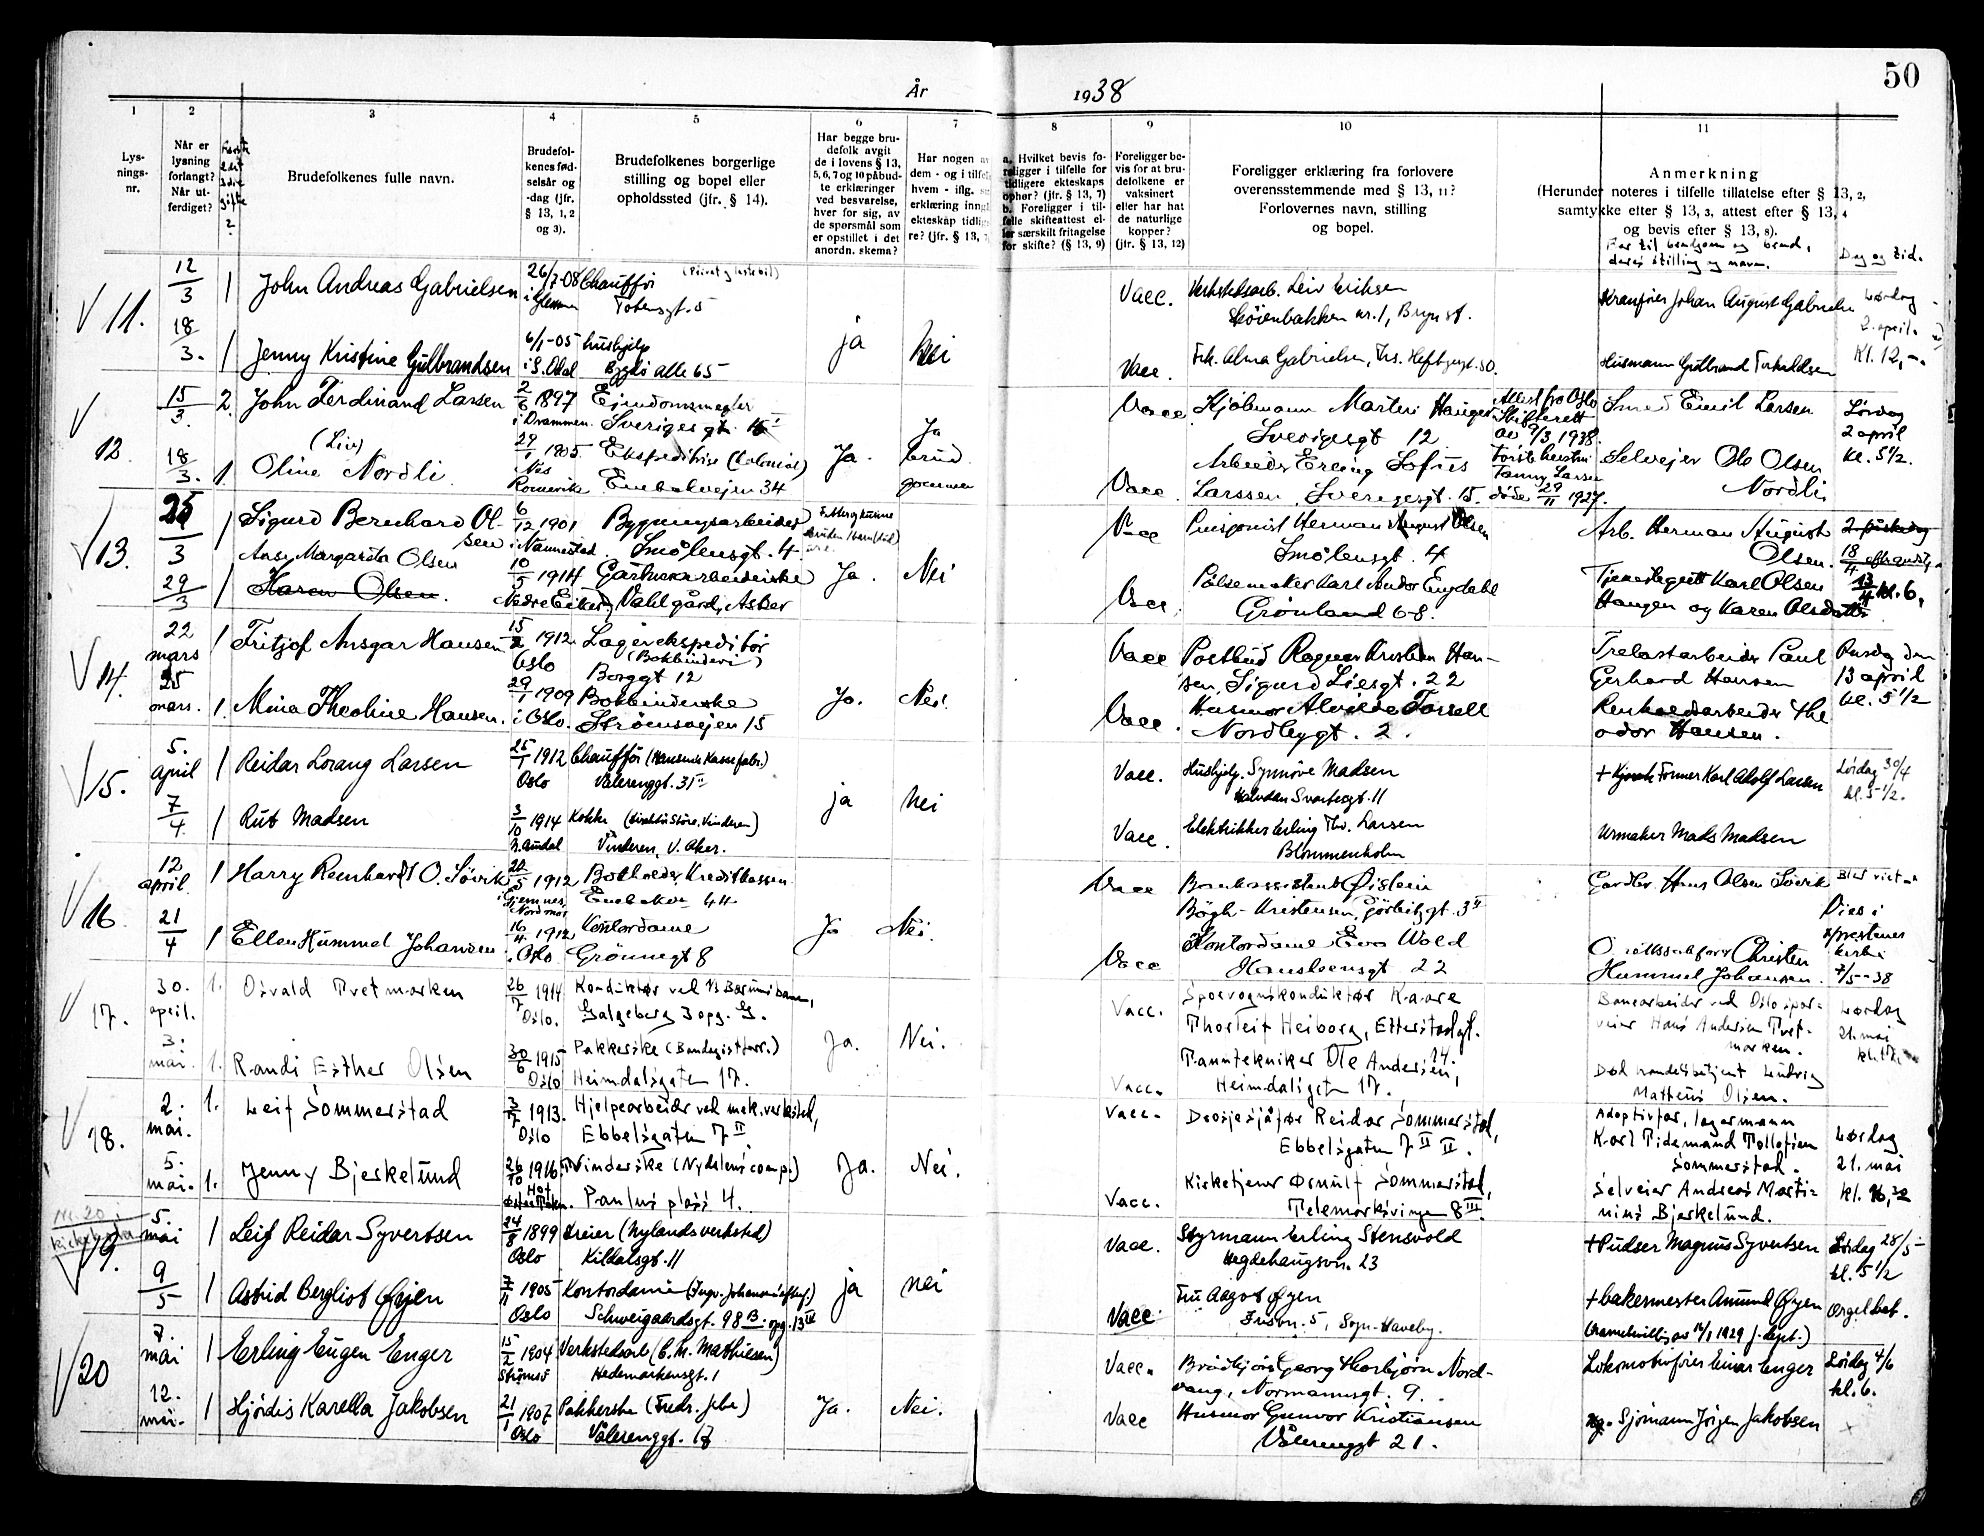 År 1938
50
1
2
3
4
5
6
7
8
9
10
11
Lys-
nings-
nr.
Når er
lysning
forlangt?
Når ut-
ferdiget?
Brudefolkenes fulle navn.
Brudefol-
kenes fød-
selsår og
-dag (jfr.
§ 13, 1, 2
og 3).
Brudefolkenes borgerlige
stilling og bopel eller
opholdssted (jfr. § 14).
Har begge bru-
defolk avgit
de i lovens § 13,
5, 6, 7 og 10 påbud-
te erklæringer
ved besvarelse,
hver for sig, av
de spørsmål som
er opstillet i det
anordn. skema?
Har nogen av
dem - og i tilfelle
hvem - iflg.
erklæring inng
ekteskap tidlig
re? (jfr. § 13, 7
a. Hvilket bevis fo-
religger i tilfelle for
tidligere ekteskaps
ophør? (jfr. § 13, 7)
b. Foreligger i til-
felle skifteattest el-
ler særskilt fritagelse
for skifte? (§ 13, 9)
Foreligger be-
vis for at bru-
defolkene er
vaksinert
eller har hat
de naturlige
kopper?
(jfr. § 13, 12)
Foreligger erklæring fra forlovere
overensstemmende med § 13, 11?
Forlovernes navn, stilling
og bopel.
Anmerkning
(Herunder noteres i tilfelle tillatelse efter § 13, 2,
samtykke efter § 13, 3, attest efter § 13, 4
og bevis efter § 13, 8).
Far til brudgom og brud,
deres stilling og navn.
Dag og tid.
V 11.
12/3 1 John Andreas Gabrielsen 26/7-08 Chauffør (Privat og lastebil)
Totengt. 5
Vacc. Verkstedsarb. Leiv Eriksen
nr. 1, Bryn st.
Kranfører Johan August Gabrielsen
Lørdag
2. april.
Kl. 12,-
18/3. 1 Jenny Kristine Gulbrandsen 6/1-05 hushjelp
i S. Odal Bygdø alle 65
ja nei
Vacc. Frk. Alma Gabrielsen, Ths. Heftyesgt. 50.
Husmann Gulbrand Torkildsen
V 12.
15/3. 2. John Ferdinand Larsen 2/6 1897 Eiendomsmegler
i Drammen. Sverigesgt. 15 I
Vacc. Kjøbmann Martin Hauger
Sverigesgt 12
Attest fra Oslo
Skifterett
av 9/3 1938.
Smed Emil Larsen
Lørdag
2 april
kl. 5½.
(Liv)
18/3. 1 Oline Nordli 29/1 1905. Ekspeditrise (Colonial)
Nes
Romerike Enebakveien 34
Ja. Ja
brud
gommen
Arbeider Erling Sofus
Vacc. Larssen, Sverigesgt. 15.
Fanny Larsen
døde 29/11 1927.
Selveier Ole Olsen
Nordli
V 13.
25/3 1 Sigurd Bernhard Ol-
sen
6/12 1901 Bygningsarbeider
i Nannestad. Smølensgt. 4
Vacc Pensjonist Herman August Olsen
Smølensgt. 4
Arb. Herman August
Olsen.
2. påskedag
18/4
13/4 kl. 6,
Aase Margareta Olsen
29/3 1 Karen Olsen. 10/5 1914 Gartnerarbeiderske
Nedre Eiker Vahl gård, Asker
Ja. Nei
Vacc. Pølsemaker Karl Andor Engdahl
Grønland 68.
Karl Olsen
Haugen og Karen Olsdatter
V 14.
22
mars 1 Fritjof Ansgar Hansen 15/2 1912 Lagerekspeditør
(Bokbinderi)
Oslo Borggt 12
Vacc Postbud Ragnar Kristian Han-
sen, Sigurd Liesgt. 22
Trelastarbeider Paul
Gerhard Hansen
Onsdag den
13 april
kl. 5 1/2
25
mars. 1. Mina Theoline Hansen. 29/1 1909 Bokbinderske
i Oslo. Strømsveien 15
Ja. Nei.
Vacc. Husmor Alvilde Torsell
Nordbygt. 2.
Renholdsarbeider The
odor Hansen.
V 15.
5.
april 1 Reidar Lorang Larsen 25/1 1912 Chauffør (Hansens Kassefabr.)
Oslo Vålerenggt. 31 II
Vacc. Hushjelp. Synnøve Madsen
Halvdan Svartesgt. 11
+ Former Karl Adolf Larsen
Lørdag 30/4
kl. 5 1/2.
7/4. 1 Rut Madsen 3/10 1914 Kokke (direktør Støre, Vinderen)
Vinderen, V. Aker.
ja nei
Vacc. Elektriker Erling Thv. Larsen
Blommenholm
Urmaker Mads Madsen
V 16.
12
april 1 Harry Reinhardt O. Søvik 20/5 1912 Bokholder Kreditkassen
Nordmør Enebakvn 44
Vacc Bankassistent Øistein
Bøgh-Kristensen, Gørbitzgt. 3 II
Gardbr Hans Olsen Søvik
Blev viet
Dies i
prestenes
kirke
7/5-38
21/4 1 Ellen Hummel Johansen 16/4 1912 Kontordame
Oslo Grønnegt 8
Ja Nei.
Vacc Kontordame Eva Wold
Hansteensgt. 22
Christen
Hummel Johansen.
V 17.
30.
april. 1. Osvald Tvetmarken 26/7 1914 Konduktør ved A/S Bærumsbanen,
Oslo. Galgeberg 3 opg. G.
Vacc. Sporvognskonduktør Kaare
Thorleif Heiborg, Etterstadgt.
24.
Banearbeider ved Oslo spor-
veier Hans Andersen Tvet-
marken.
Lørdag
21. mai
kl. 17.
3.
mai. 1. Randi Esther Olsen 30/6 1915 Pakkerske (Bandagistforr.)
Oslo Heimdalsgaten 17.
Ja. Nei.
Tanntekniker Ole Andersen,
Vacc. Heimdalsgaten 17.
Død handelsbetjent Ludvig
Matteus Olsen.
V 18.
2.
mai. 1. Leif Sommerstad 3/7 1913. Hjelpearbeider ved mek. verksted,
Oslo Ebbelsgaten 7 II
Vacc. Drosjesjåfør Reidar Sommerstad,
Ebbelsgaten 7 II II.
Adoptivfar, lagermann
Karl Tidemand Tollofsen
Sommerstad.
Lørdag
21. mai
5.
mai. 1. Jenny Bjerkelund 26/10 1916 Tvinderske (Nydalens comp.)
Paulus plass 4.
Ja. Nei.
Vacc. Kirketjener Ørnulf Sommerstad,
Telemarksvingen 8 III.
Selveier Andreas Marti-
nius Bjerkelund.
Nr. 20 i
kirkeboken
V 19.
5.
mai 1 Leif Reidar Syvertsen 24/8 1899 Dreier (Nylands verksted)
Oslo Kildalsgt. 11
Vacc. Styrmann Erling Stensvold
Hegdehaugsvn. 23
+ Pudser Magnus Syvertsen
Lørdag 28/5
kl. 5 1/2
9/5 1 Astrid Bergliot Øyen 7/11 1905 Kontordame
Oslo Schweigaardsgt. 98 B. opg. 13 III
ja nei
Vacc. Fru Aagot Øyen
5, Sogn Haveby.
+ bakermester Amund Øyen
Orgel bet.
V 20
7.
mai 1 Erling Eugen Enger 15/2 1904 Verkstedsarb (C. M. Mathiesen)
Hedemarkensgt. 1
Vacc. Georg Thorbjørn Nord-
vang, Normannsgt. 9.
Lokomotivfører Einar Enger
Lørdag 4/6
kl. 6.
12.
mai. 1 Hjördis Karella Jakobsen 21/1 1907 Pakkerske (Fredr. )
Oslo Vålerenggt. 17
Ja. Nei.
Vacc Husmor Gunvor Kristiansen
Vålerenggt 21.
Sjømann Jörgen Jakobsen